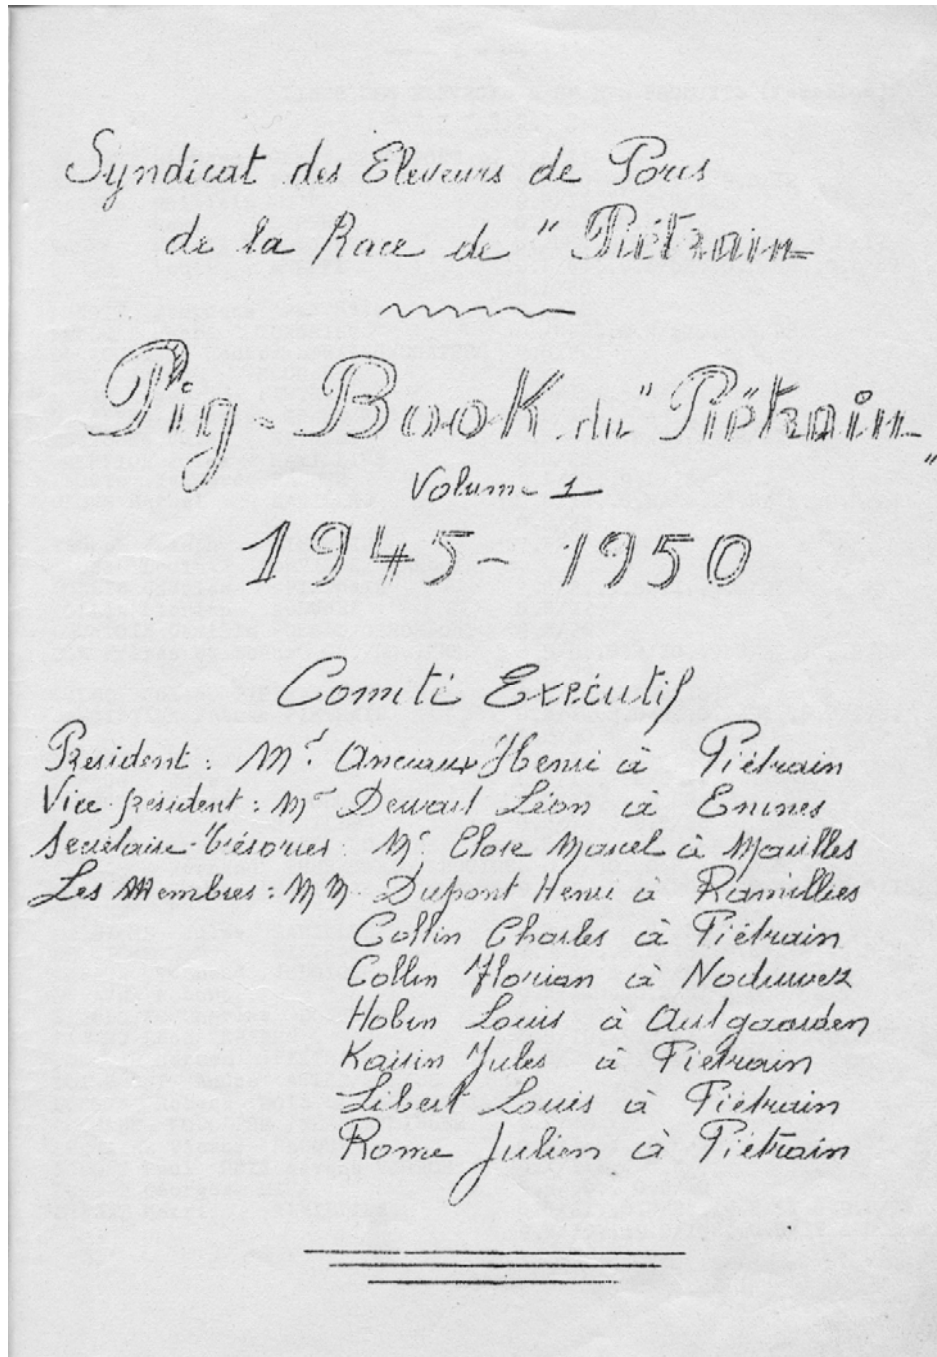 Syndicat des Eleveurs de Porcs
de la Race de "Piétrain
Pig-Book du "Piétrain"
Volume 1
1945-1950
Comité Exécutif
Président: Mr. Anciaux Henri à Piétrain
Vice-président: Mr Dewael Léon à Enines
Secrétaire-Trésorier: Mr. Close Marcel à Marilles
Les Membres: MM. Dupont Henri à Ramillies
Collin Charles à Piétrain
Collin Florian à Noduwez
Hobin Louis à Autgaarden
Kaisin Jules à Piétrain
Libert Louis à Piétrain
Rome Julien à Piétrain